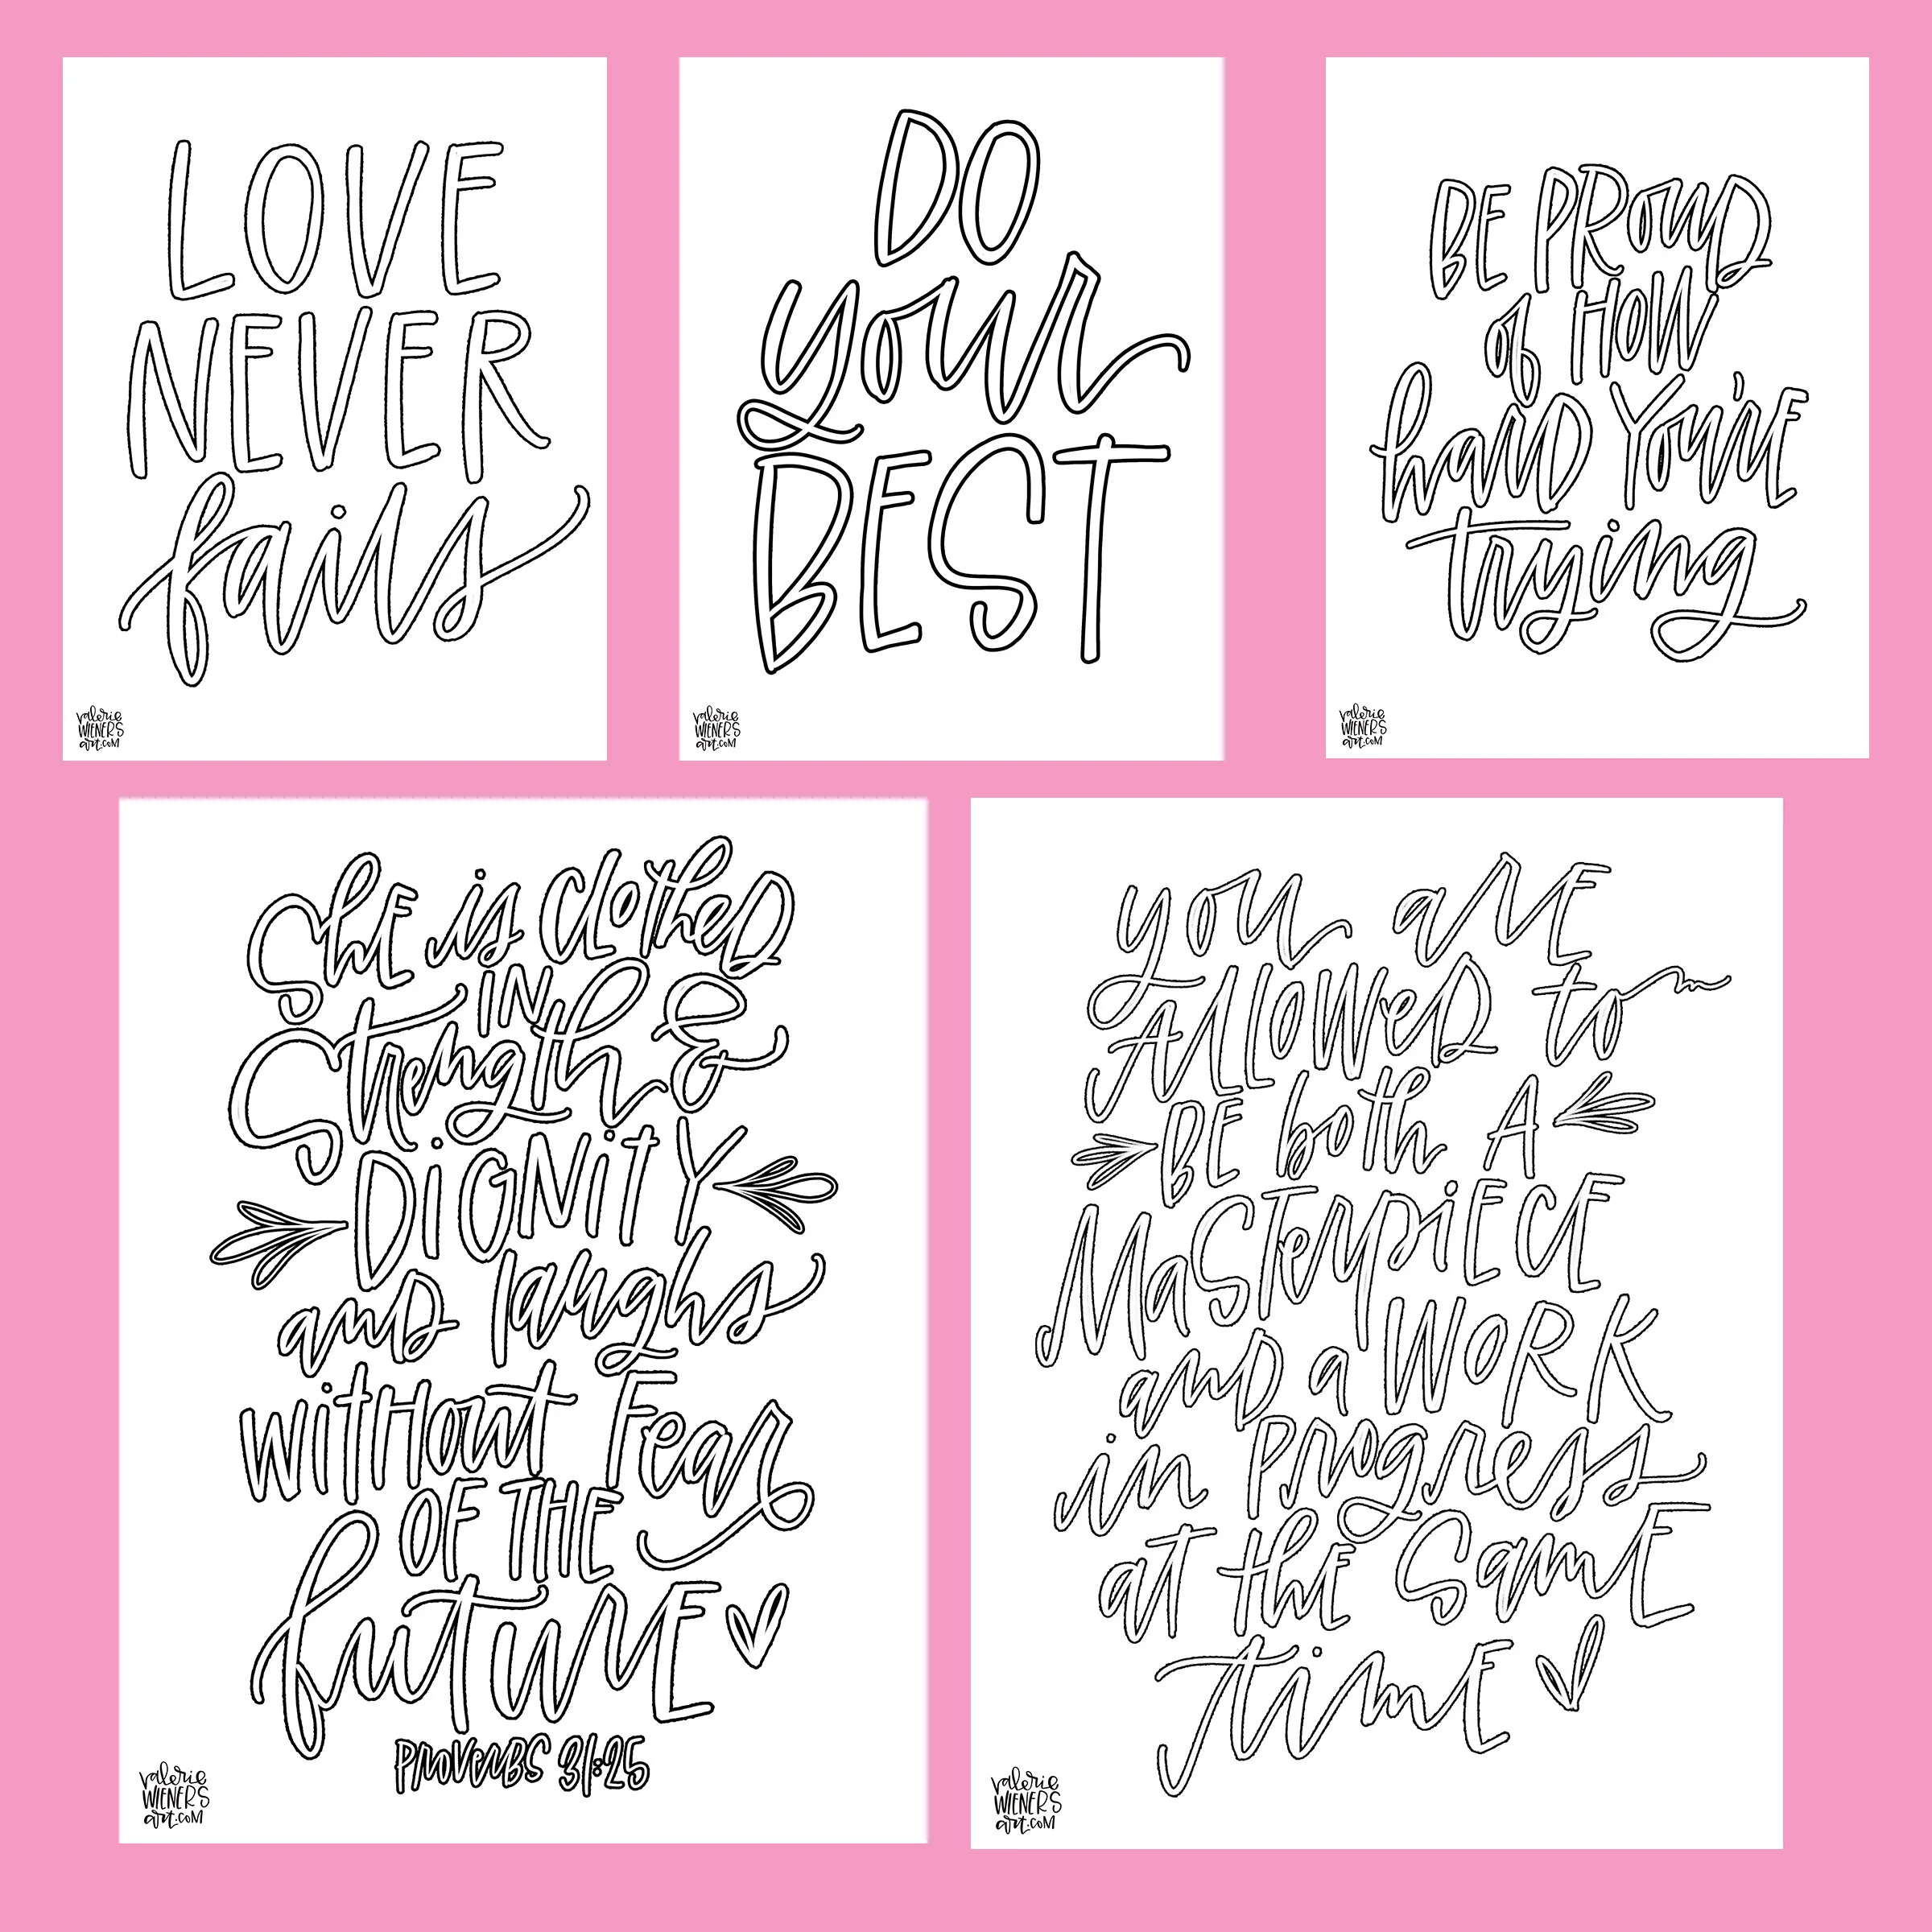 LOVE
NEVER
fails
valerie
WIENERS
art.com
DO
your
BEST
valerie
WIENERS
art.com
BE PROUD
of HOW
hard You're
trying
valerie
WIENERS
art.com
She is Clothed
IN
Strength &
DiGNiTY
and laughs
without Fear
OF THE
future
Proverbs 31:25
valerie
WIENERS
art.com
you are
Allowed to
BE both A
MaSTerpiECE
and a WORK
in progress
at the Same
time
valerie
WIENERS
art.com